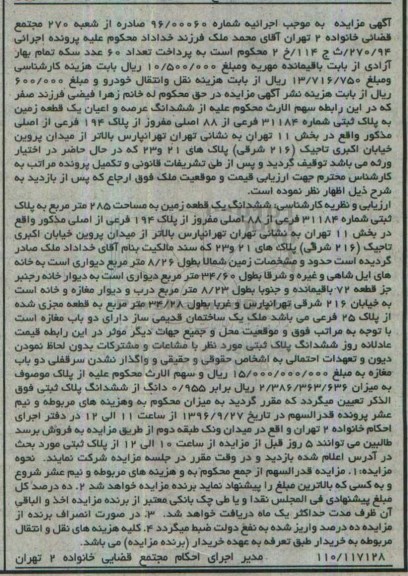 آگهی مزایده به موجب اجرائیه شماره 96/00060 صادره از شعبه 270 مجتمع
قضائی خانواده 2 تهران آقای محمد ملک فرزند خداداد محکوم علیه پرونده اجرائی
270/94/ث ج 114/خ 2 محکوم است به پرداخت تعداد 60 عدد سکه تمام بهار
آزادی از بابت باقیمانده مهریه ومبلغ 10/500/000 ریال بابت هزینه کارشناسی
ومبلغ 13/716/750 ریال از بابت هزینه نقل وانتقال خودرو و مبلغ 600/000
ریال از بابت هزینه نشر آگهی مزایده در حق محکوم له خانم زهرا فیضی فرزند صفر
که در این رابطه سهم الارث محکوم علیه از ششدانگ عرصه و اعیان یک قطعه زمین
به پلاک ثبتی شماره 31184 فرعی از 88 اصلی مفروز از پلاک 194 فرعی از اصلی
مذکور واقع در بخش 11 تهران به نشانی تهران تهرانپارس بالاتر از میدان پروین
خیابان اکبری تاجیک (216 شرقی) پلاک های 21 و23 که در حال حاضر در اختیار
ورثه می باشد توقیف گردید و پس از طی تشریفات قانونی و تکمیل پرونده مراتب به
کارشناس محترم جهت ارزیابی قیمت و موقعیت ملک فوق ارجاع که پس از بازدید به
شرح ذیل اظهار نظر نموده است.
ارزیابی و نظریه کارشناسی: ششدانگ یک قطعه زمین به مساحت 285 متر مربع به پلاک
ثبتی شماره 31184 فرعی از 88 اصلی مفروز از پلاک 194 فرعی از اصلی مذکور واقع
در بخش 11 تهران به نشانی تهران تهرانپارس بالاتر از میدان پروین خیابان اکبری
تاجیک (216 شرقی) پلاک های 21 و23 که سند مالکیت بنام آقای خداداد ملک صادر
گردیده است حدود و مشخصات زمین شمالا بطول 8/26 متر مربع دیواری است به خانه
های ایل شاهی و غیره و شرقا بطول 34/60 متر مربع دیواری است به دیوار خانه رجنبر
جز قطعه 72 باقیمانده و جنوبا بطول 8/23 متر مربع درب و دیوار مغازه و خانه است
به خیابان 216 شرقی تهرانپارس و غربا بطول 34/28 متر مربع به قطعه مجزی شده
از پلاک 25 فرعی می باشد ملک یک ساختمان قدیمی ساز دارای دو باب مغازه است
با توجه به مراتب فوق و موقعیت محل و جمیع جهات دیگر موثر در این رابطه قیمت
عادلانه روز ششدانگ پلاک ثبتی مورد نظر با مشاعات و مشترکات بدون لحاظ نمودن
دیون و تعهدات احتمالی به اشخاص حقوقی و حقیقی و واگذار نشدن سرقفلی دو باب
مغازه به مبلغ 15/000/000/000 ریال و سهم الارث محکوم علیه از پلاک موصوف
به میزان 2/386/363/636 ریال برابر 0/955 دانگ از ششدانگ پلاک ثبتی فوق
الذکر تعیین میگردد که مقرر گردید به میزان محکوم به وهزینه های مربوطه و نیم
عشر پرونده قدرالسهم در تاریخ 1396/9/27 از ساعت 11 الی 12 در دفتر اجرای
احکام خانواده 2 تهران و اقع در میدان ونک طبقه دوم از طریق مزایده به فروش برسد
طالبین می توانند 5 روز قبل از مزایده از ساعت 10 الی 12 از پلاک ثبتی مورد بحث
در آدرس اعلام شده بازدید و در وقت مقرر در جلسه مزایده شرکت نمایند. نحوه
مزایده: 1. مزایده قدرالسهم از جمع محکوم به و هزینه های مربوطه و نیم عشر شروع
و به کسی که بالاترین مبلغ را پیشنهاد نماید برنده مزایده خواهد شد 2. ده درصد کل
مبلغ پیشنهادی فی المجلس نقدا و یا طی چک بانکی معتبر از برنده مزایده اخذ و الباقی
آن ظرف مدت حداکثر یک ماه دریافت خواهد شد. 3. در صورت انصراف برنده از
مزایده ده درصد واریز شده به نفع دولت ضبط میگردد 4. کلیه هزینه های نقل و انتقال
مربوطه به خریدار طبق تعرفه به عهده خریدار (برنده مزایده) می باشد.
110/117128 مدیر اجرای احکام مجتمع قضایی خانواده 2 تهران